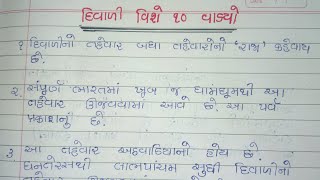 દિવાળી વિશે ૧૦ વાક્યો
૧ દિવાળીનો તહેવાર બધા તહેવારોનો 'રાજા' કહેવાય
છે.
૨. સંપૂર્ણ ભારતમાં ખૂબ જ ધામધૂમથી આ
તહેવાર ઊજવવામાં આવે છે. આ પર્વ
પ્રકાશનું છે.
૩ આ તહેવાર અઠવાડિયાનો હોય છે.
ધનતેરસથી લાભપાંચમ સુધી દિવાળીનો
તહેવાર